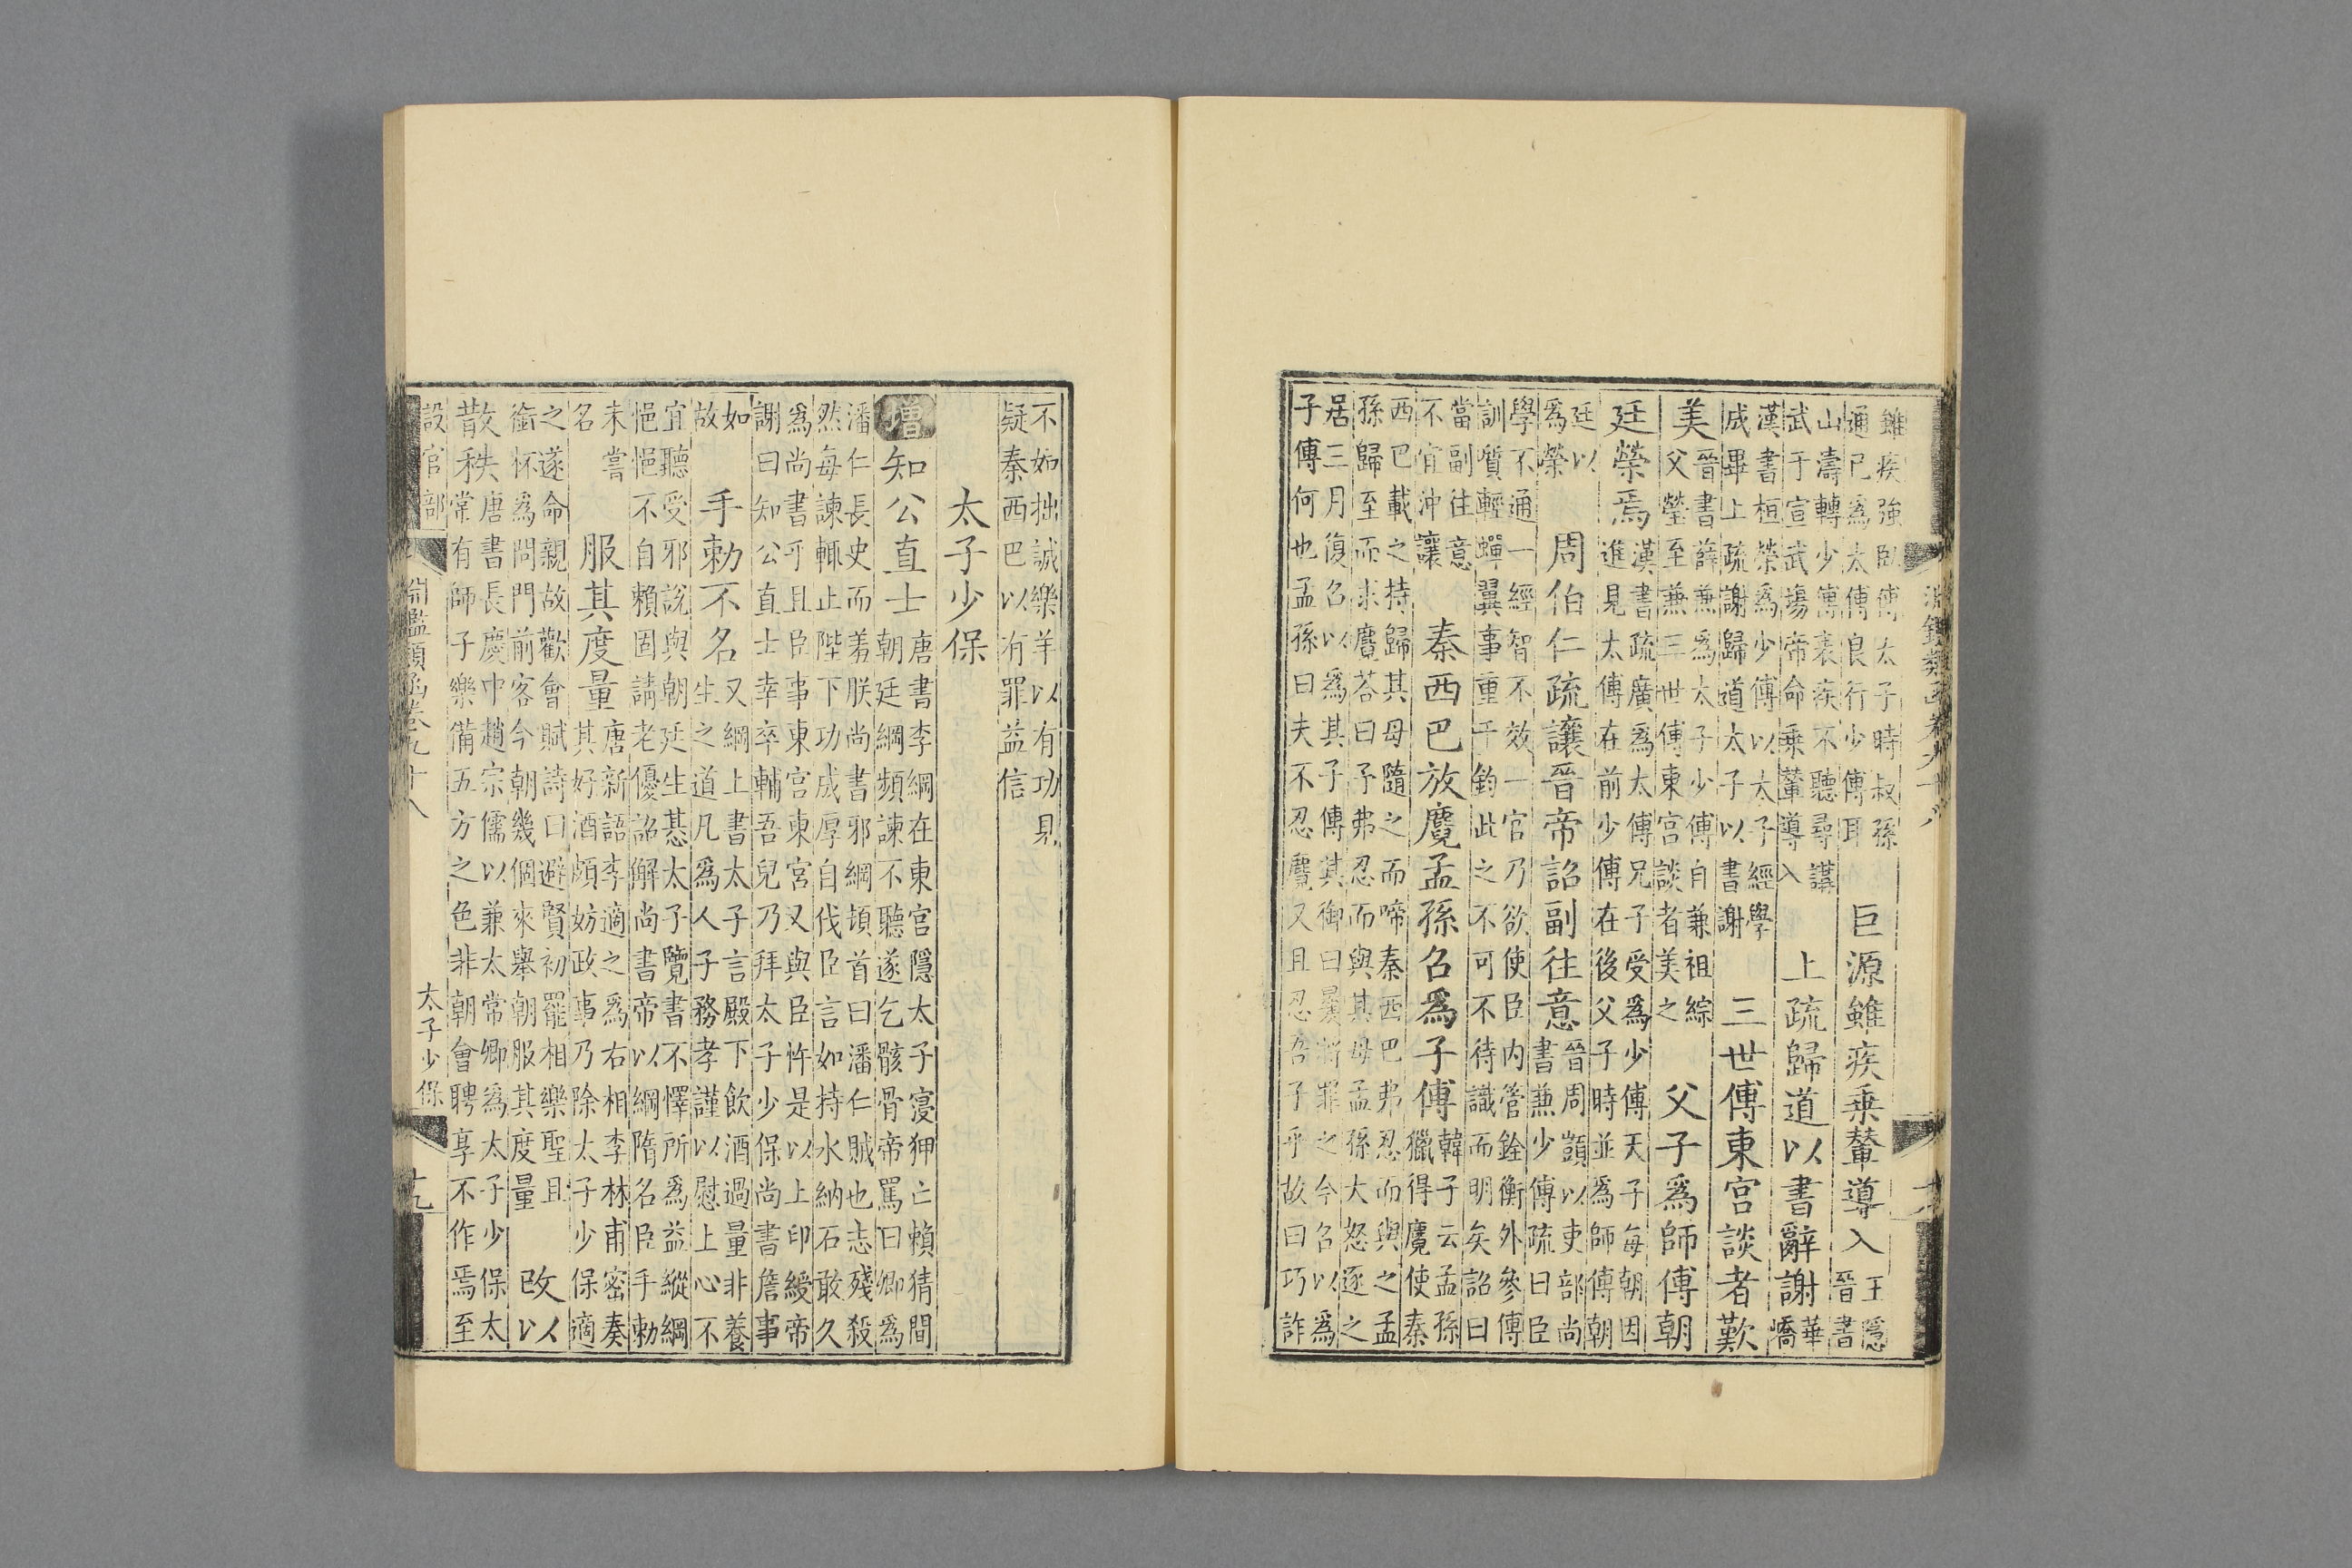 淵鑑類函卷九十八
雖疾強臥傅太子時叔孫
通已爲太傅良行少傅耳
巨源雖疾乘輦導入
王隱
晉書
山濤轉少傅袁疾不聽尋講
武于宣武塲帝命乘輦導入
上疏歸道以書辭謝
華
嶠
漢書桓榮爲少傅以太子經學
成畢上疏謝歸道太子以書謝
三世傅東宮談者歎
美
晉書薛兼爲太子少傅自兼祖綜
父瑩至兼三世傅東宮談者美之
父子爲師傅朝
廷榮焉
漢書疏廣爲太傅兄子受爲少傅天子每朝因
進見太傅在前少傅在後父子時並爲師傅朝
廷以
爲榮
周伯仁疏讓晉帝詔副往意
晉周顗以吏部尚
書兼少傅疏曰臣
學不通一經智不效一官乃欲使臣内管銓衡外參傅
訓質輕蟬翼事重千鈞此之不可不待識而明矣詔曰
當副往意
不宜沖讓
秦西巴放麑孟孫召爲子傅
韓子云孟孫
獵得麑使秦
西巴載之持歸其母隨之而啼秦西巴弗忍而與之孟
孫歸至而求麑荅曰予弗忍而與其母孟孫大怒逐之
居三月復召以爲其子傅其御曰曩將罪之今召以爲
子傅何也孟孫曰夫不忍麑又且忍吾子乎故曰巧詐
不如拙誠樂羊以有功見
疑秦西巴以有罪益信
太子少保
增
知公直士
唐書李綱在東宮隱太子寖狎亡賴猜間
朝廷綱頻諫不聽遂乞骸骨帝罵曰卿爲
潘仁長史而羞朕尚書邪綱頓首曰潘仁賊也志殘殺
然每諫輒止陛下功成厚自伐臣言如持水納石敢久
爲尚書乎且臣事東宮東宮又與臣忤是以上印綬帝
謝曰知公直士幸卒輔吾兒乃拜太子少保尚書詹事
如
故
手勅不名
又綱上書太子言殿下飲酒過量非養
生之道凡爲人子務孝謹以慰上心不
宜聽受邪說與朝廷生惎太子覽書不懌所爲益縱綱
悒悒不自賴固請老優詔解尚書帝以綱隋名臣手勅
未嘗
名
服其度量
唐新語李適之爲右相李林甫密奏
其好酒頗妨政事乃除太子少保適
之遂命親故歡會賦詩曰避賢初罷相樂聖且
銜杯爲問門前客今朝幾個來舉朝服其度量
改以
散秩
唐書長慶中趙宗儒以兼太常卿爲太子少保太
常有師子樂備五方之色非朝會聘享不作焉至
設官部
淵鑑類函卷九十八
太子少保
十九